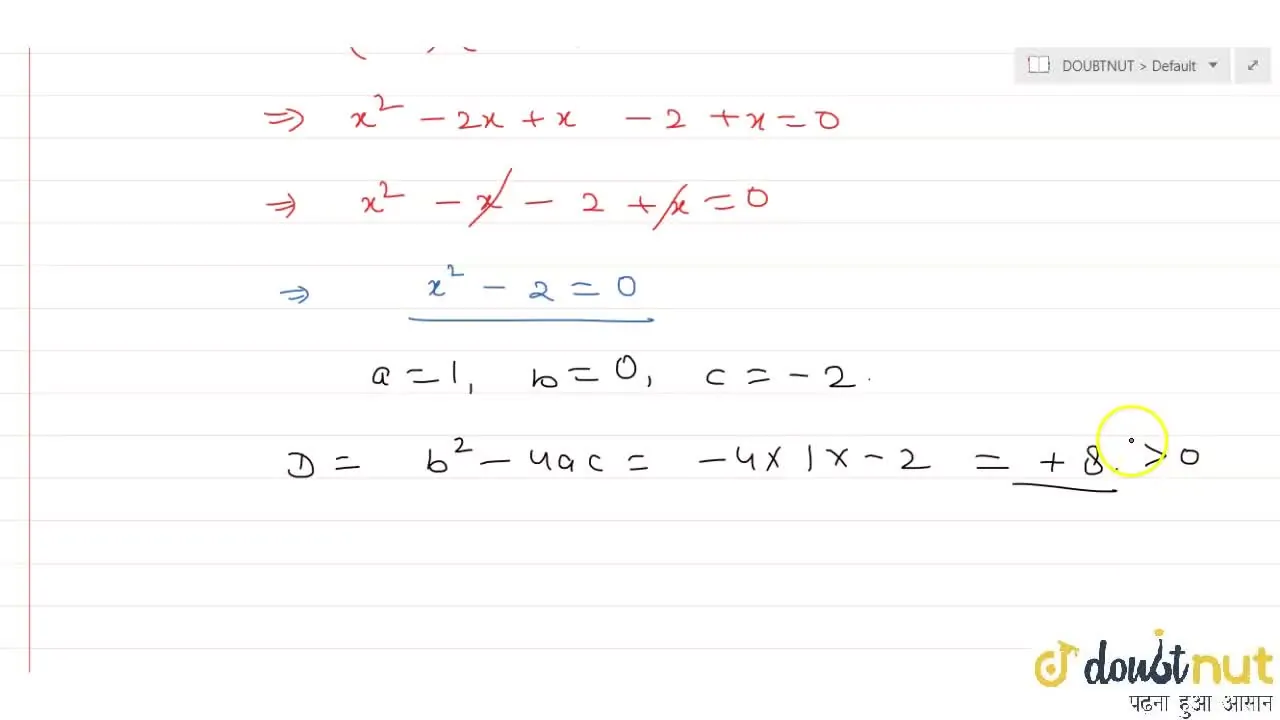 DOUBTNUT > Default
⇒ x² - 2x + x - 2 + x = 0
⇒ x² - x - 2 + x = 0
⇒ x² - 2 = 0
a = 1, b = 0, c = -2.
D = b² - 4ac = -4 × 1 × -2 = +8. > 0
doubtnut
पढ़ना हुआ आसान